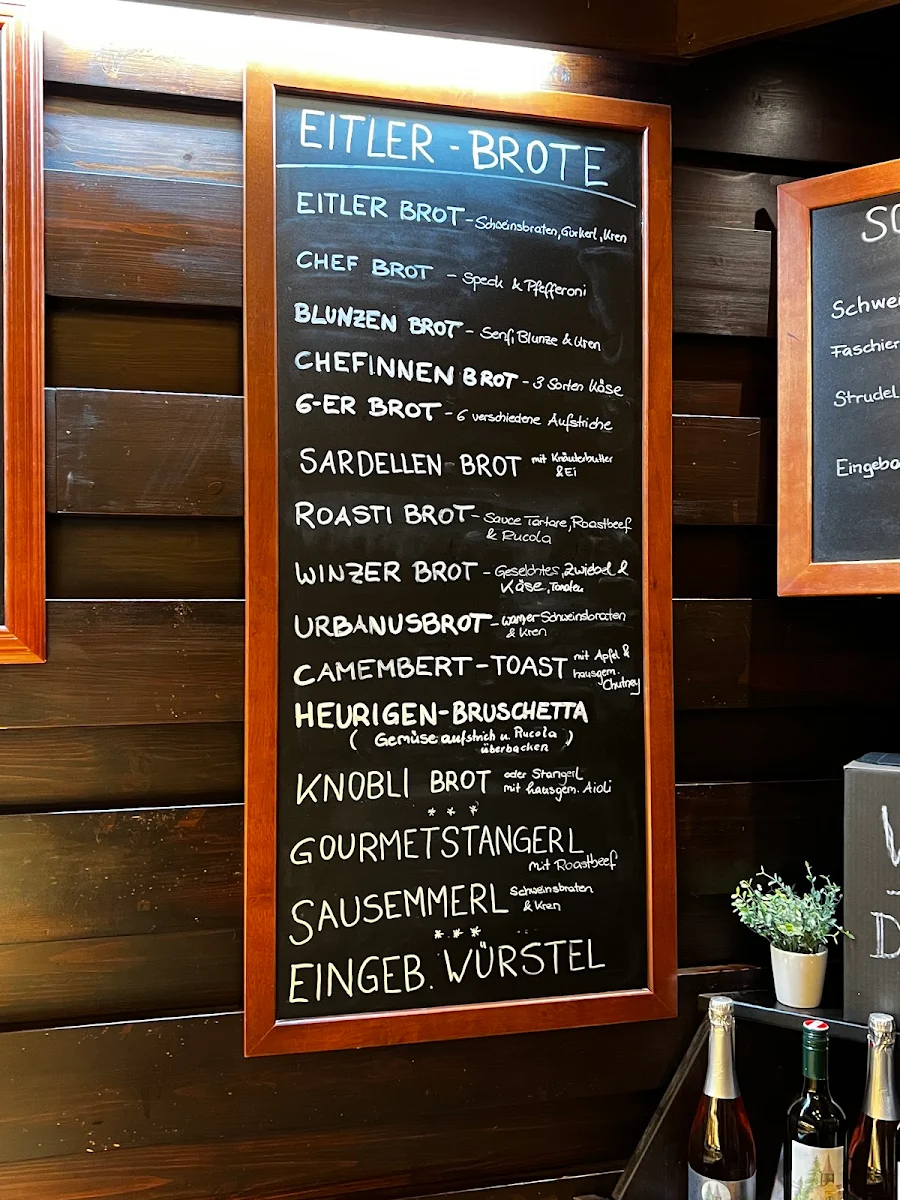 EITLER - BROTE
EITLER BROT - Schweinsbraten, Gurkerl, Kren
CHEF BROT - Speck & Pfefferoni
BLUNZEN BROT - Senf, Blunze & Kren
CHEFINNEN BROT - 3 Sorten Käse
6-ER BROT - 6 verschiedene Aufstriche
SARDELLEN BROT mit Kräuterbutter
& Ei
ROASTI BROT - Sauce Tartare, Roastbeef
& Rucola
WINZER BROT - Geselchtes, Zwiebel &
Käse, Tomaten
URBANUSBROT - warmer Schweinsbraten
& Kren
CAMEMBERT - TOAST mit Apfel &
hausgem.
Chutney
HEURIGEN - BRUSCHETTA
( Gemüseaufstrich u. Rucola
überbacken )
KNOBLI BROT oder Stangerl
mit hausgem. Aioli
* * *
GOURMETSTANGERL
mit Roastbeef
SAUSEMMERL Schweinsbraten
& Kren
* * *
EINGEB. WÜRSTEL
SO
Schwei
Faschier
Strudel
Eingeba
D